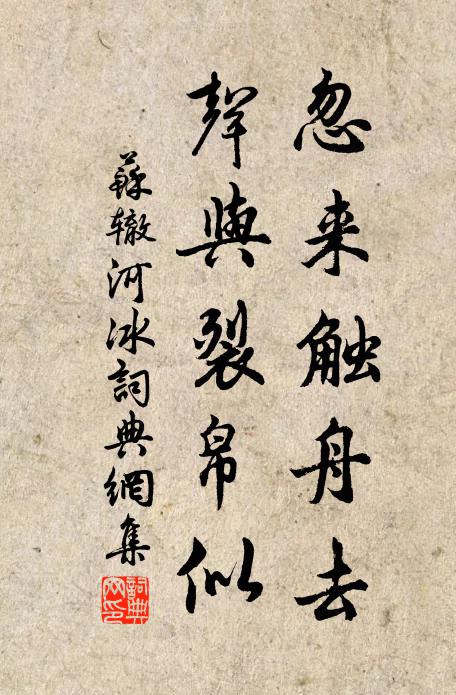 忽来触舟去
聲與裂帛似
蘇辙河冰詞典網集
詞典